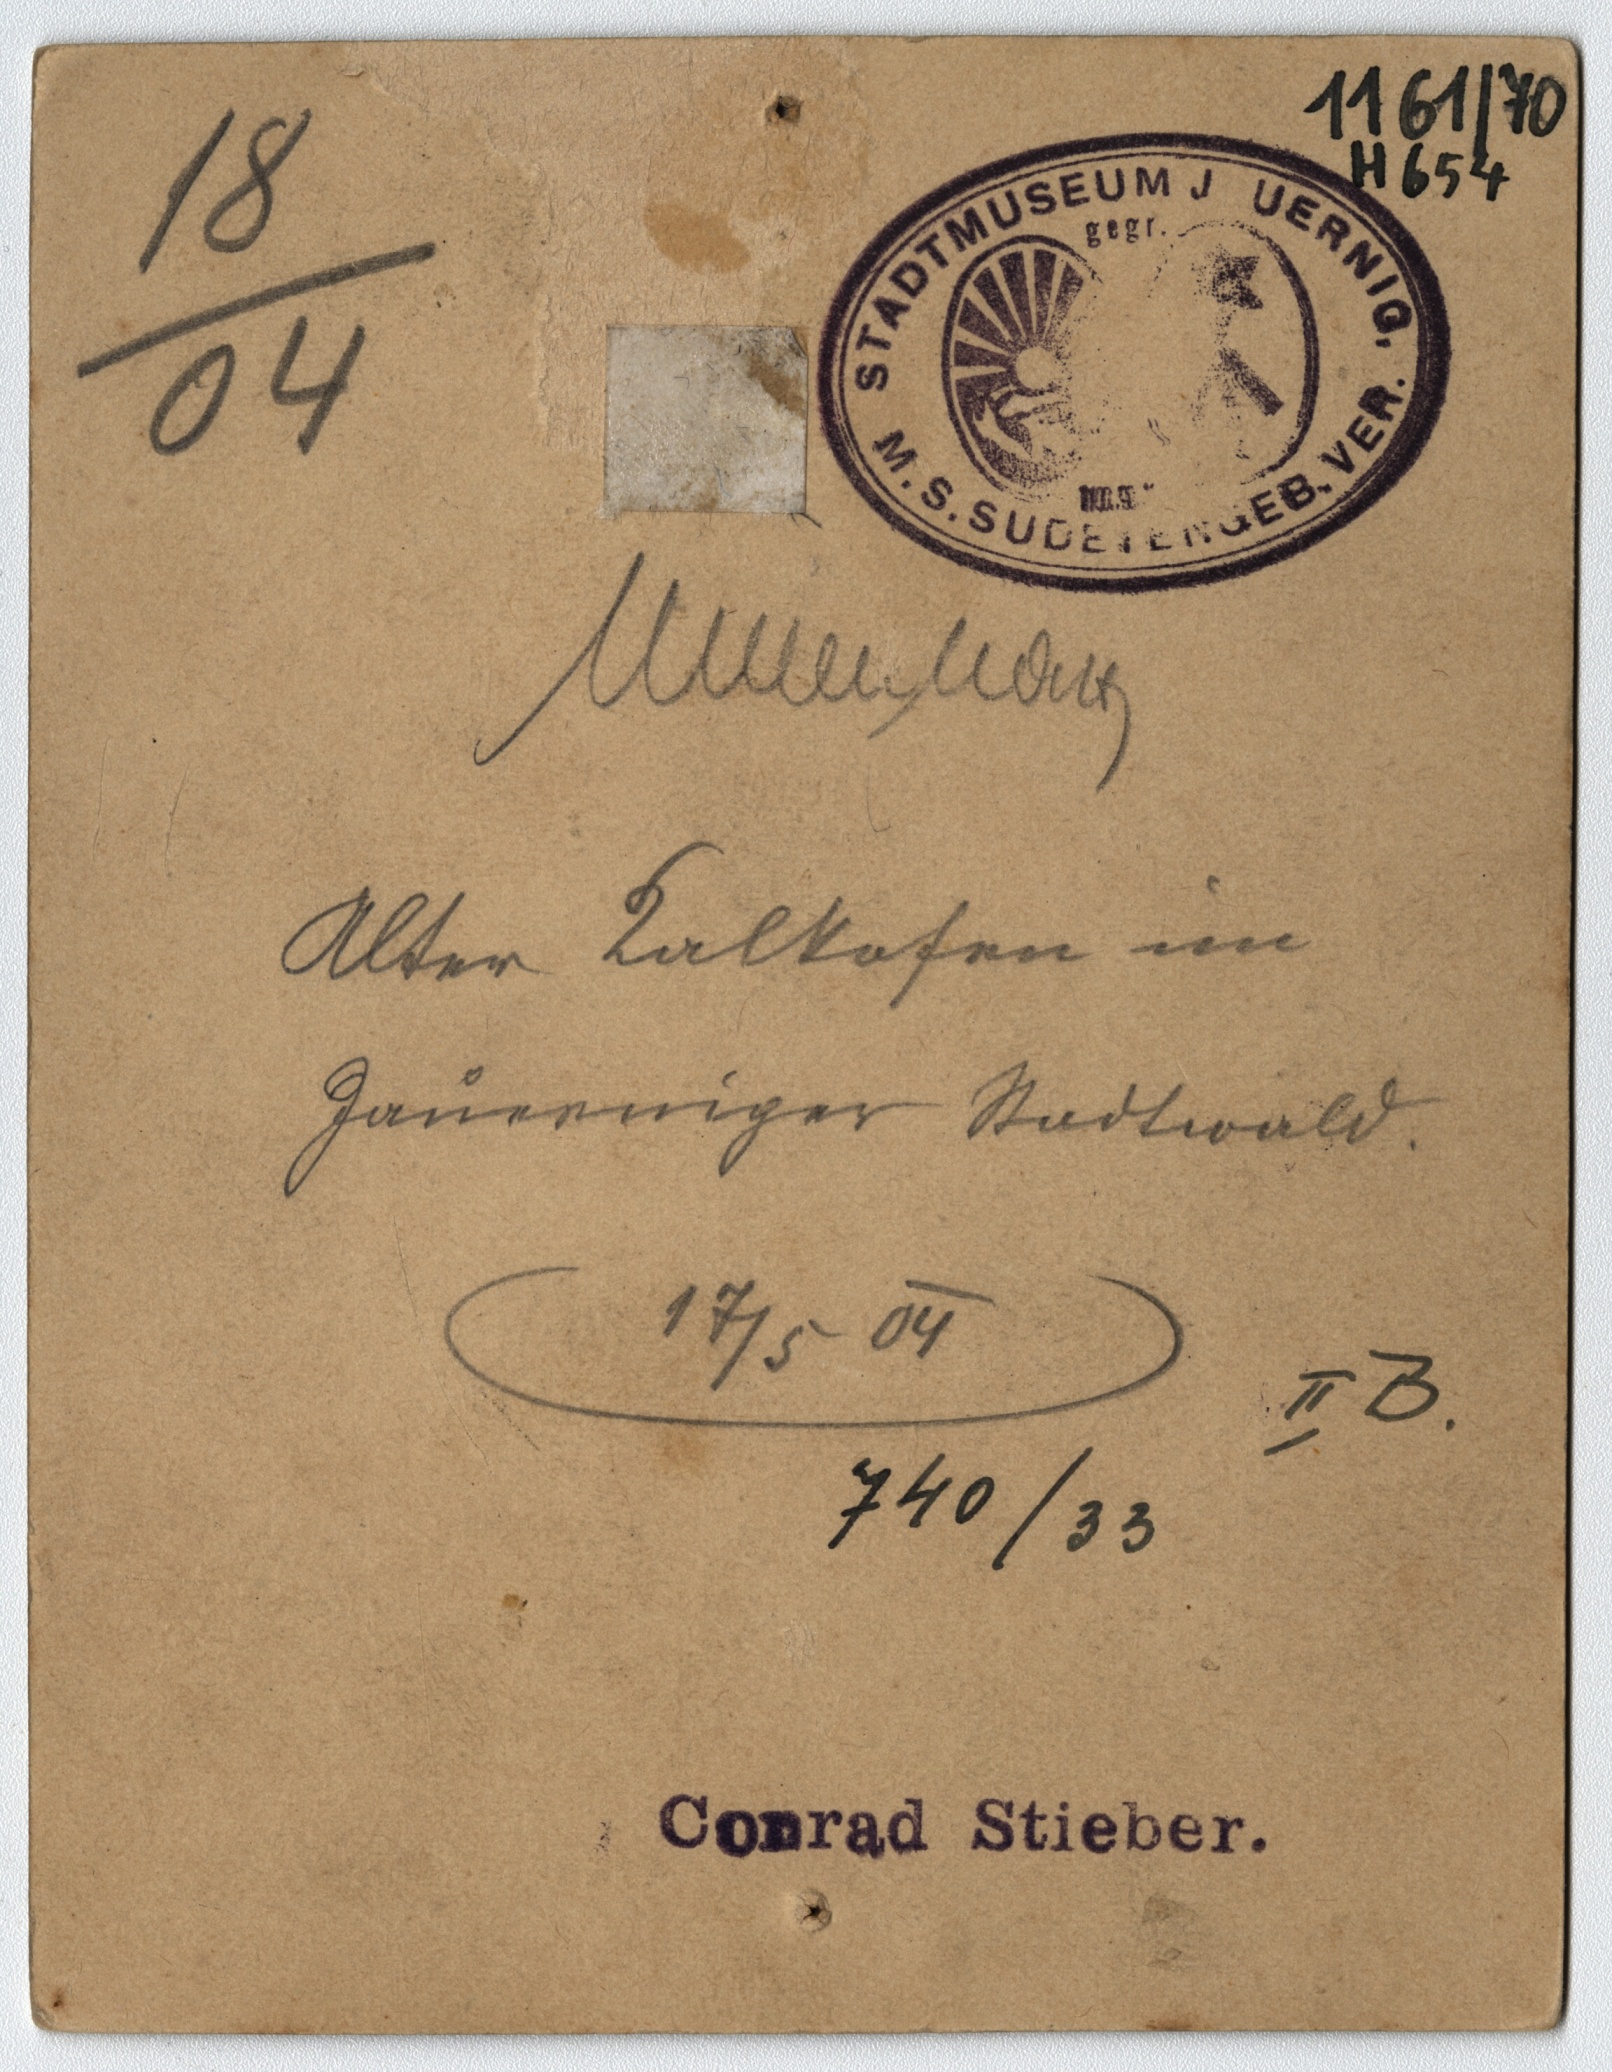 18
04
1161/70
H 654
STADTMUSEUM J UERNIG,
gegr.
M. S. SUDETENGEB. VER.
Alter Kalkofen im
Jauerniger Stadtwald.
17/5 04
II B.
740/33
Conrad Stieber.